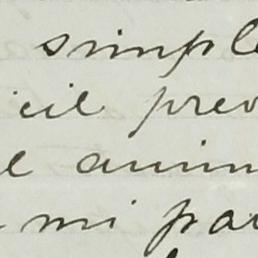 simple
cil prev
l anim
mi par